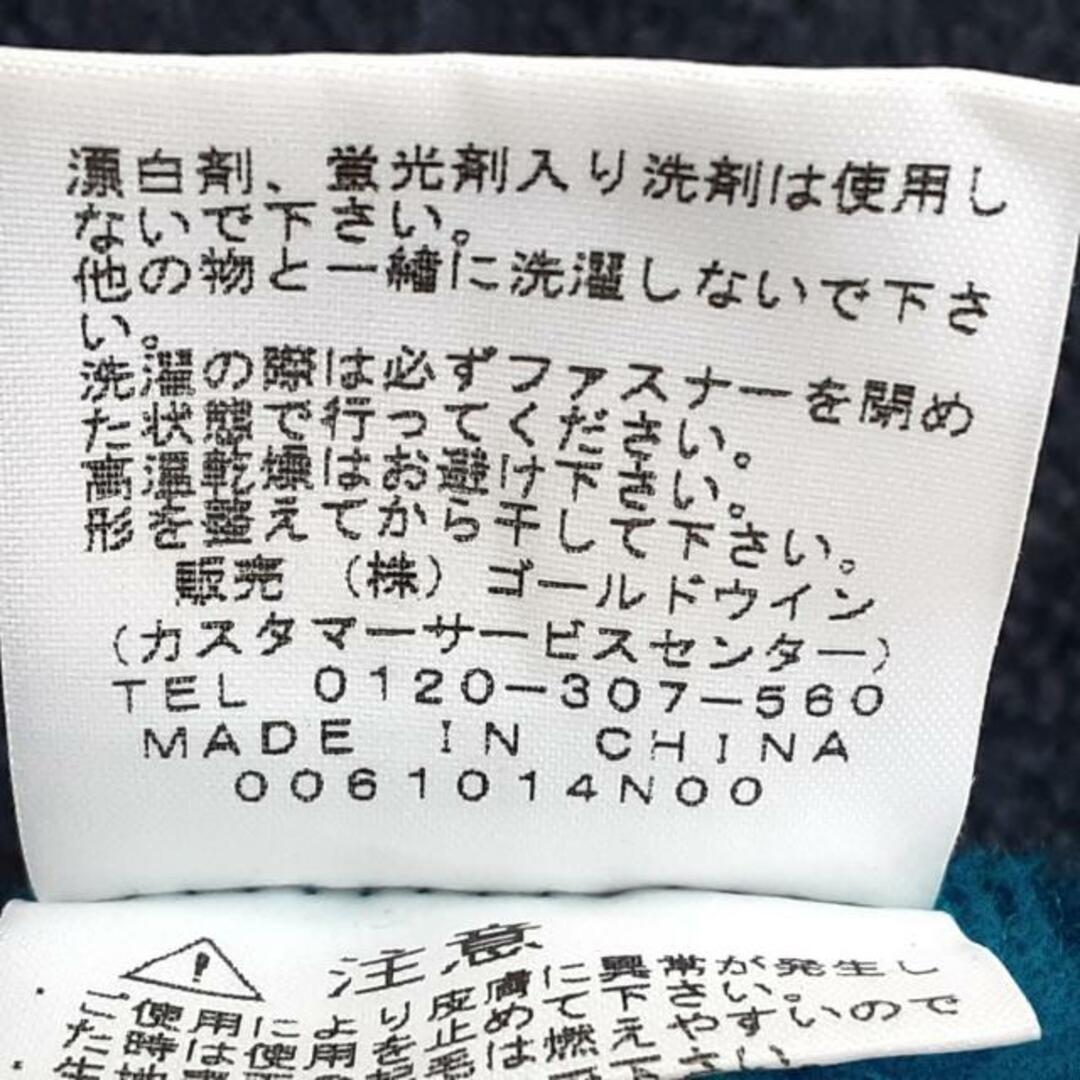 漂白剤、蛍光剤入り洗剤は使用し
ないで下さい。
他の物と一緒に洗濯しないで下さ
い。
洗濯の際は必ずファスナーを閉め
た状態で行ってください。
高温乾燥はお避け下さい。
形を整えてから干して下さい。
販売 (株) ゴールドウイン
(カスタマーサービスセンター)
TEL 0120-307-560
MADE IN CHINA
0061014N00
注意
・ご使用により皮膚に異常が発生し
た時は使用を止めて下さい。
・生地表面の起毛は燃えやすいので
下さい